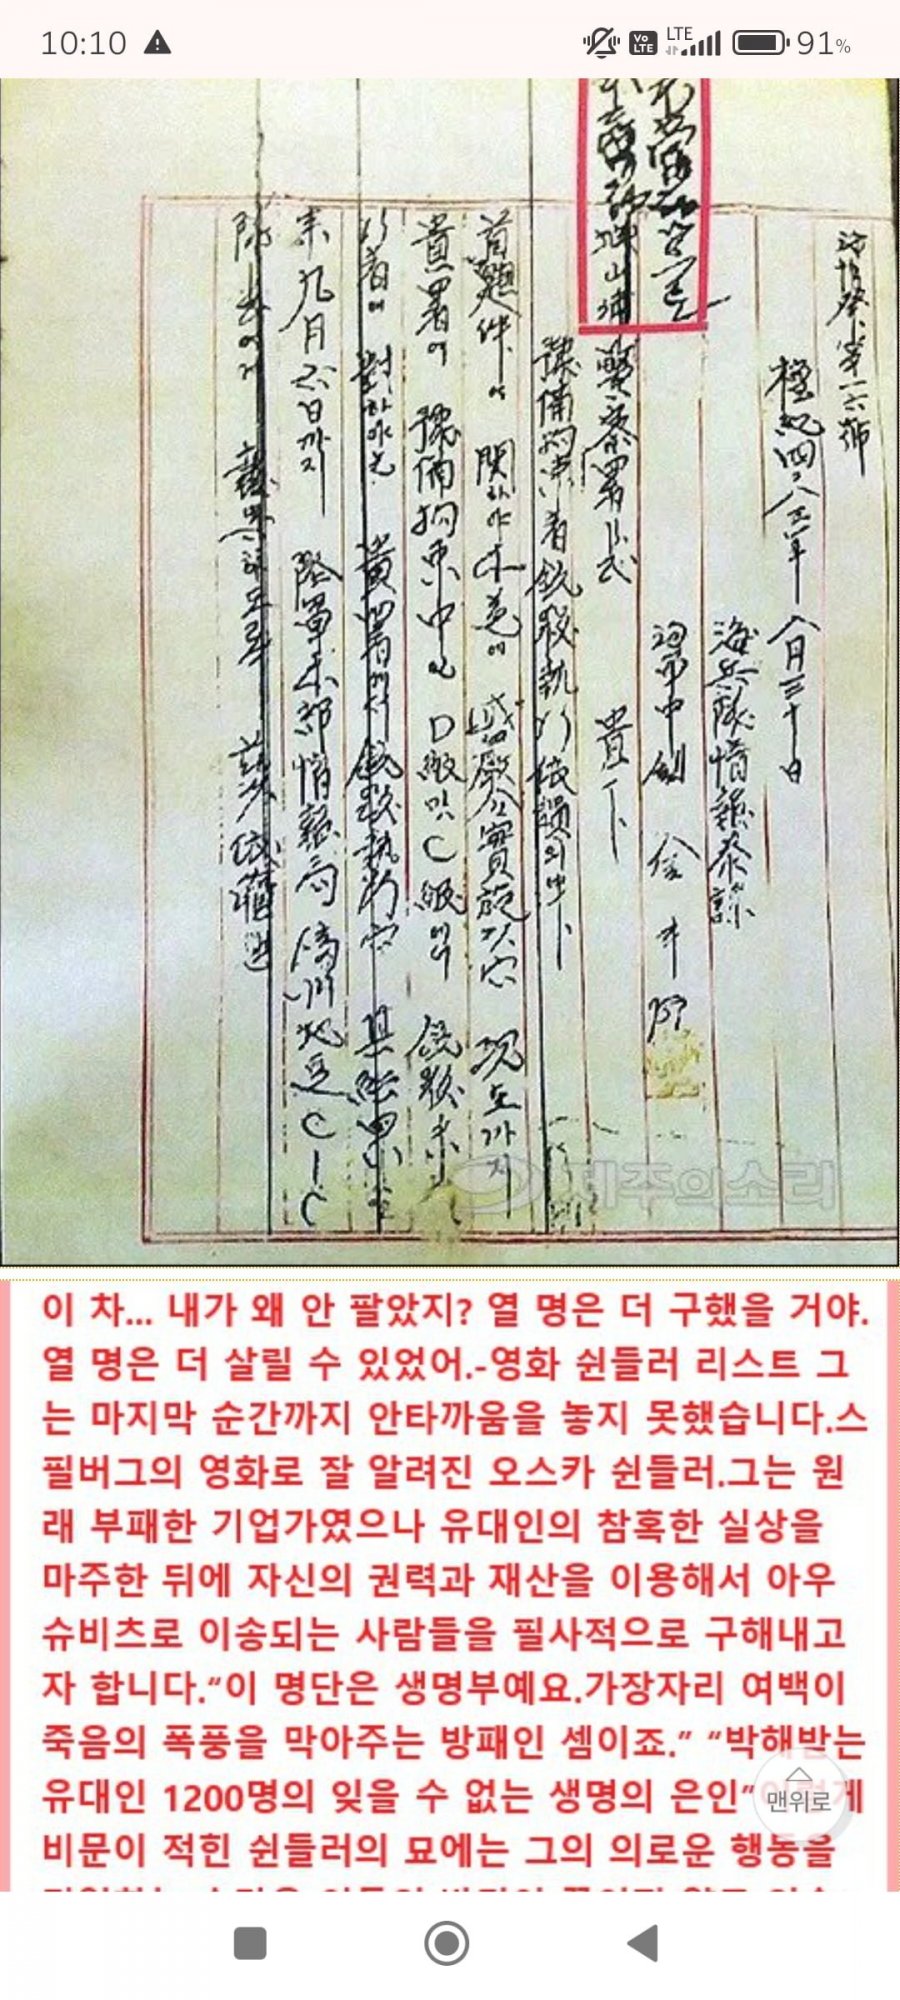 10:10
Vo LTE
LTE
91%
海情發第一六號
檀紀四二八三年 八月三十日
海兵隊情報參謀
海軍中領 金斗
城山浦警察署長 貴下
豫備拘束者銃殺執行依賴의件
首題件에 關하야 本道에 戒嚴令實施以后 現在까지
貴署에 豫備拘束中인 D級 및 C級에서 銃殺未
行者에 對하야는 貴署에서 銃殺執行后 其結果를
來九月六日까지 陸軍本部情報局濟州地區CIC
隊長에게 報告하도록 依賴함
제주의소리
이 차... 내가 왜 안 팔았지? 열 명은 더 구했을 거야.
열 명은 더 살릴 수 있었어.-영화 쉰들러 리스트 그
는 마지막 순간까지 안타까움을 놓지 못했습니다.스
필버그의 영화로 잘 알려진 오스카 쉰들러.그는 원
래 부패한 기업가였으나 유대인의 참혹한 실상을
마주한 뒤에 자신의 권력과 재산을 이용해서 아우
슈비츠로 이송되는 사람들을 필사적으로 구해내고
자 합니다.“이 명단은 생명부예요.가장자리 여백이
죽음의 폭풍을 막아주는 방패인 셈이죠.” “박해받는
유대인 1200명의 잊을 수 없는 생명의 은인”이렇게
맨위로
비문이 적힌 쉰들러의 묘에는 그의 의로운 행동을